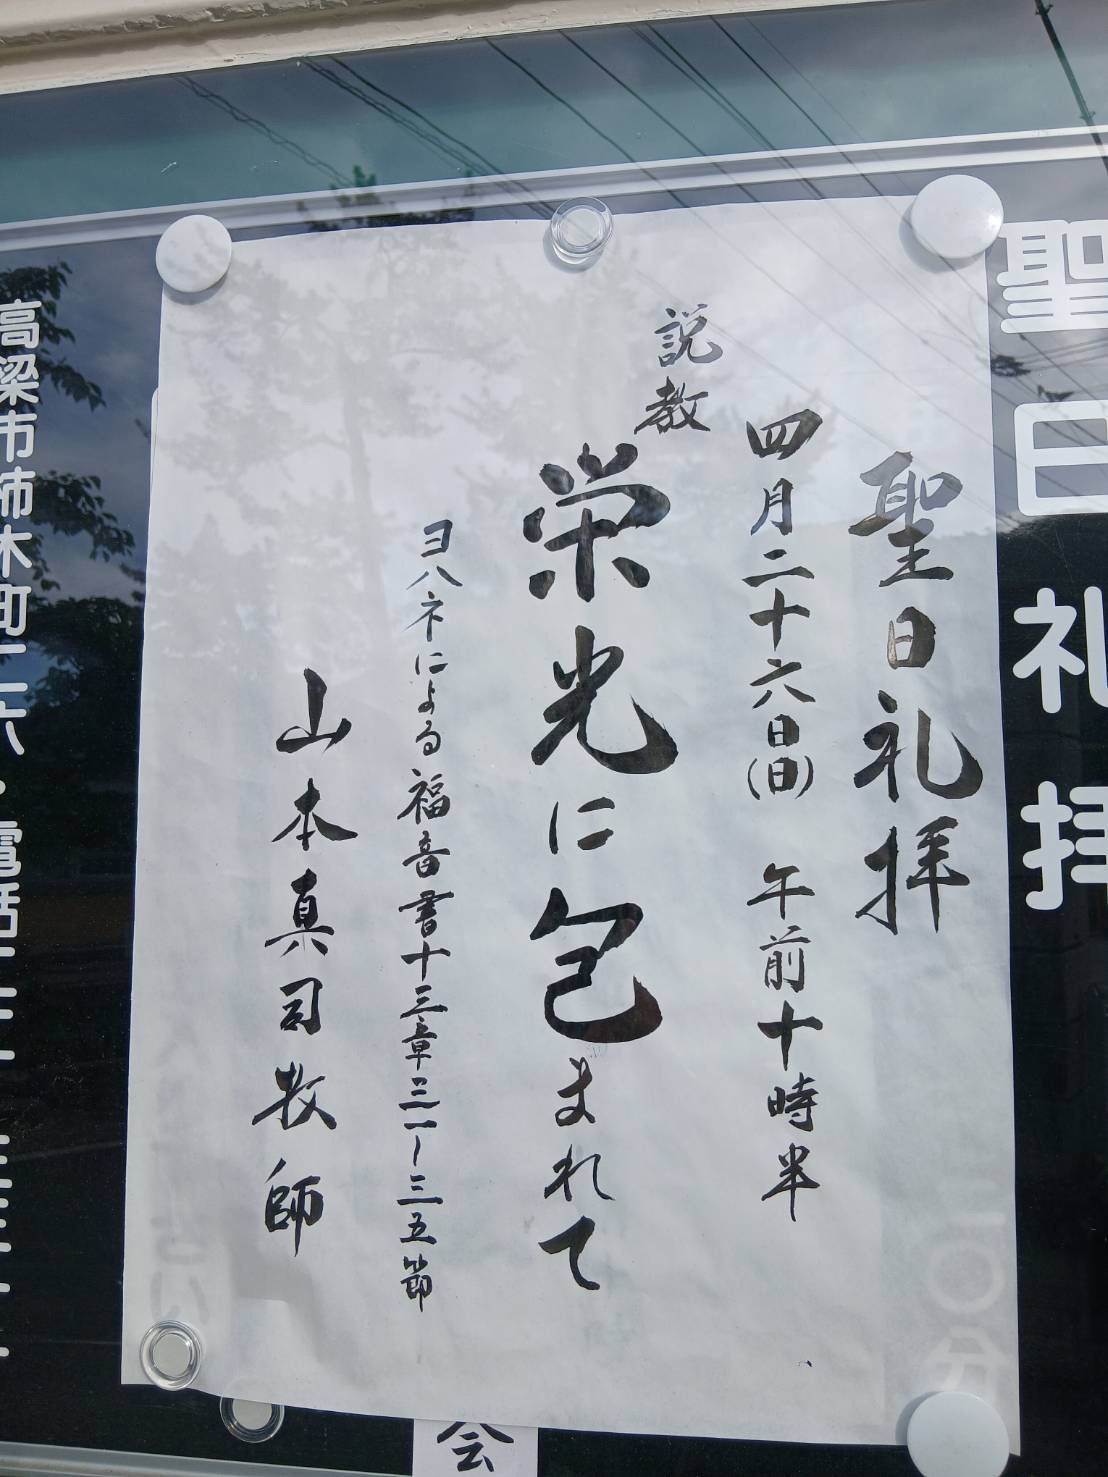 聖日礼拝
聖日礼拝
四月二十六日(日) 午前十時半
説教
栄光に包まれて
ヨハネによる福音書十三章三一〜三五節
山本真司牧師
高梁市柿木町二六・電話二二
会
〇分